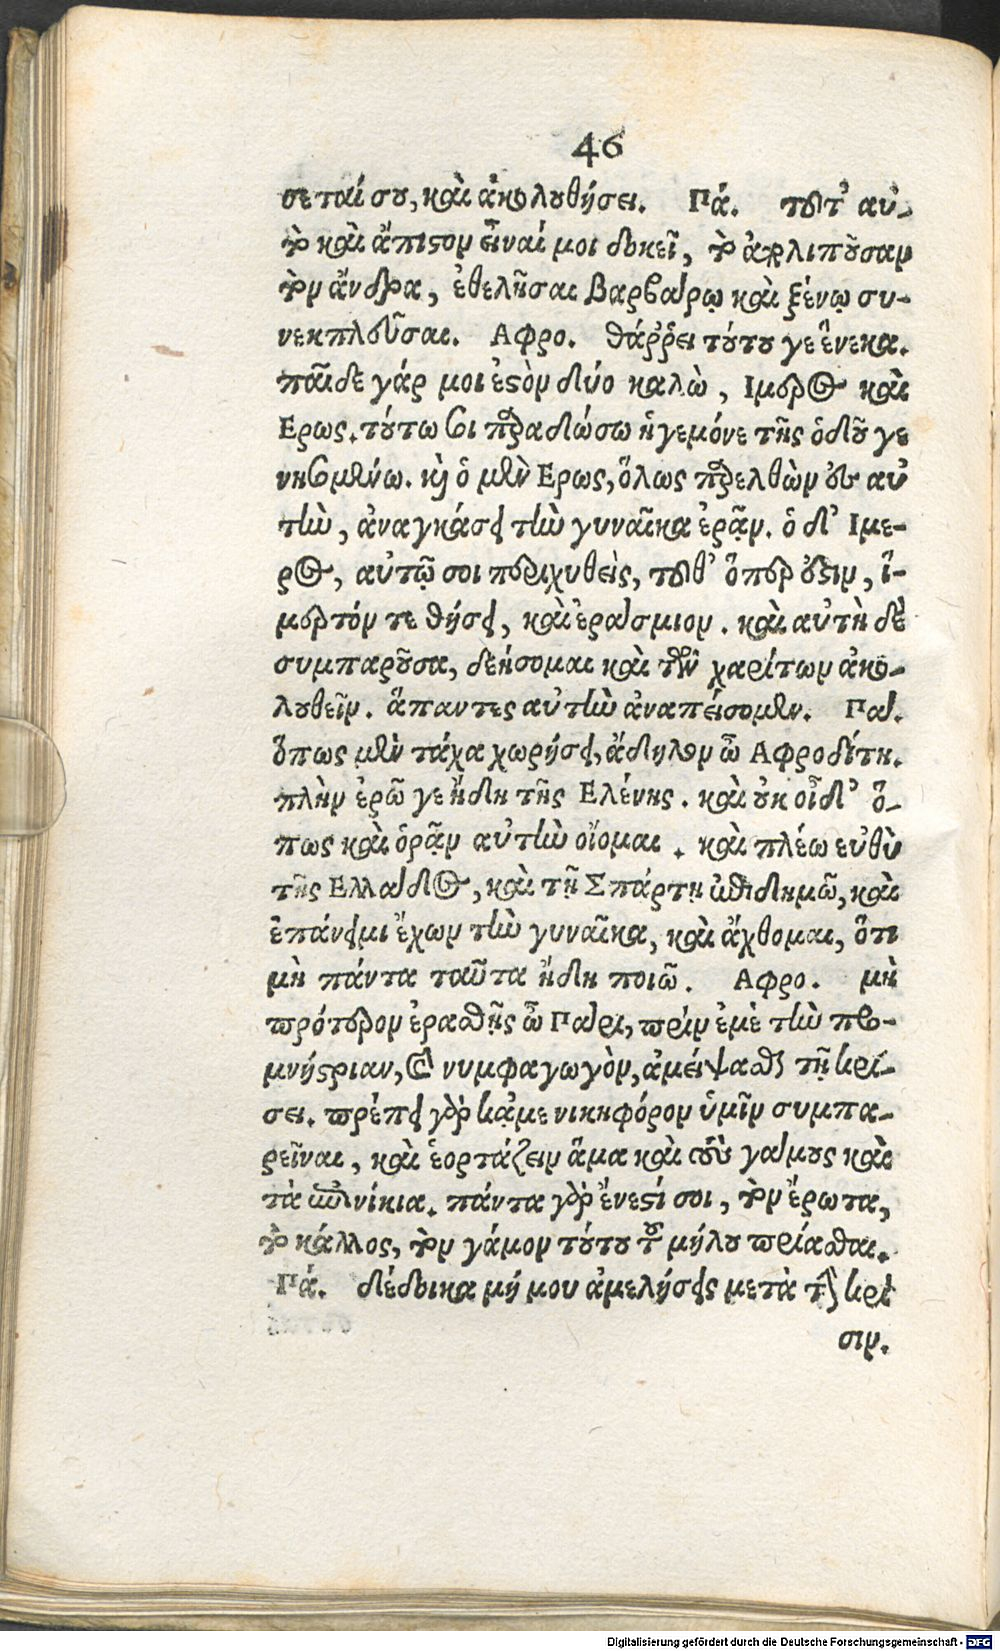 46
σεταί σου, καὶ ἀκολουθήσει. Πά. τοῦτ' αὐ-
τὸ καὶ ἄπιστον εἶναί μοι δοκεῖ, τὸ ἀπολιποῦσαν
τὸν ἄνδρα, ἐθελῆσαι βαρβάρῳ καὶ ξένῳ συ-
νεκπλεῦσαι. Αφρο. θάῤῥει τούτου γε ἕνεκα.
παῖδε γάρ μοι ἐστὸν δύο καλὼ, Ιμερος καὶ
Ερως. τούτω σοι παραδώσω ἡγεμόνε τῆς ὁδοῦ γε
νησομένω. καὶ ὁ μὲν Ερως, ὅλως παρελθὼν ἐς αὐ
τὴν, ἀναγκάσει τὴν γυναῖκα ἐρᾷν. ὁ δ' Ιμε-
ρος, αὐτῷ σοι περιχυθεὶς, τοῦθ' ὅπερ ἐστὶν, ἱ-
μερτόν τε θήσει, καὶ ἐράσμιον. καὶ αὐτὴ δὲ
συμπαροῦσα, δεήσομαι καὶ τῶν χαρίτων ἀκο-
λουθεῖν. ἅπαντες αὐτὴν ἀναπείσομεν. Πά.
ὅπως μὲν τάχα χωρήσει, ἄδηλον ὦ Αφροδίτη.
πλὴν ἐρῶ γε ἤδη τῆς Ελένης. καὶ οὐκ οἶδ' ὅ-
πως καὶ ὁρᾷν αὐτὴν οἴομαι. καὶ πλέω εὐθὺ
τῆς Ελλάδος, καὶ τῇ Σπάρτῃ ἐπιδημῶ, καὶ
ἐπάνειμι ἔχων τὴν γυναῖκα, καὶ ἄχθομαι, ὅτι
μὴ πάντα ταῦτα ἤδη ποιῶ. Αφρο. μὴ
πρότερον ἐρασθῇς ὦ Πάρι, πρὶν ἐμὲ τὴν προ-
μνήστριαν, καὶ νυμφαγωγὸν, ἀμείψασθαι τῇ κρί-
σει. πρέπει γὰρ κᾀμε νικηφόρον ὑμῖν συμπα-
ρεῖναι, καὶ ἑορτάζειν ἅμα καὶ τοὺς γάμους καὶ
τὰ ἐπινίκια. πάντα γὰρ ἔνεστί σοι, τὸν ἔρωτα,
τὸ κάλλος, τὸν γάμον τούτου τοῦ μήλου πρίασθαι.
Πά. δέδοικα μή μου ἀμελήσεις μετὰ τὴν κρί
σιν.
Digitalisierung gefördert durch die Deutsche Forschungsgemeinschaft - DFG